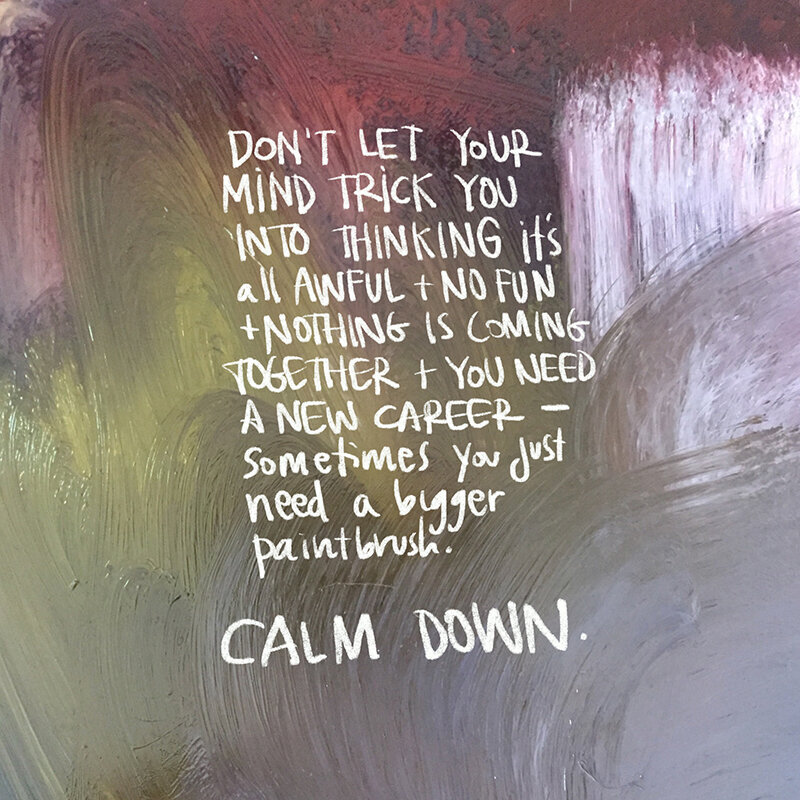 DON'T LET YOUR
MIND TRICK YOU
INTO THINKING it's
all AWFUL + NO FUN
+ NOTHING IS COMING
TOGETHER + YOU NEED
A NEW CAREER —
sometimes you just
need a bigger
paintbrush.
CALM DOWN.